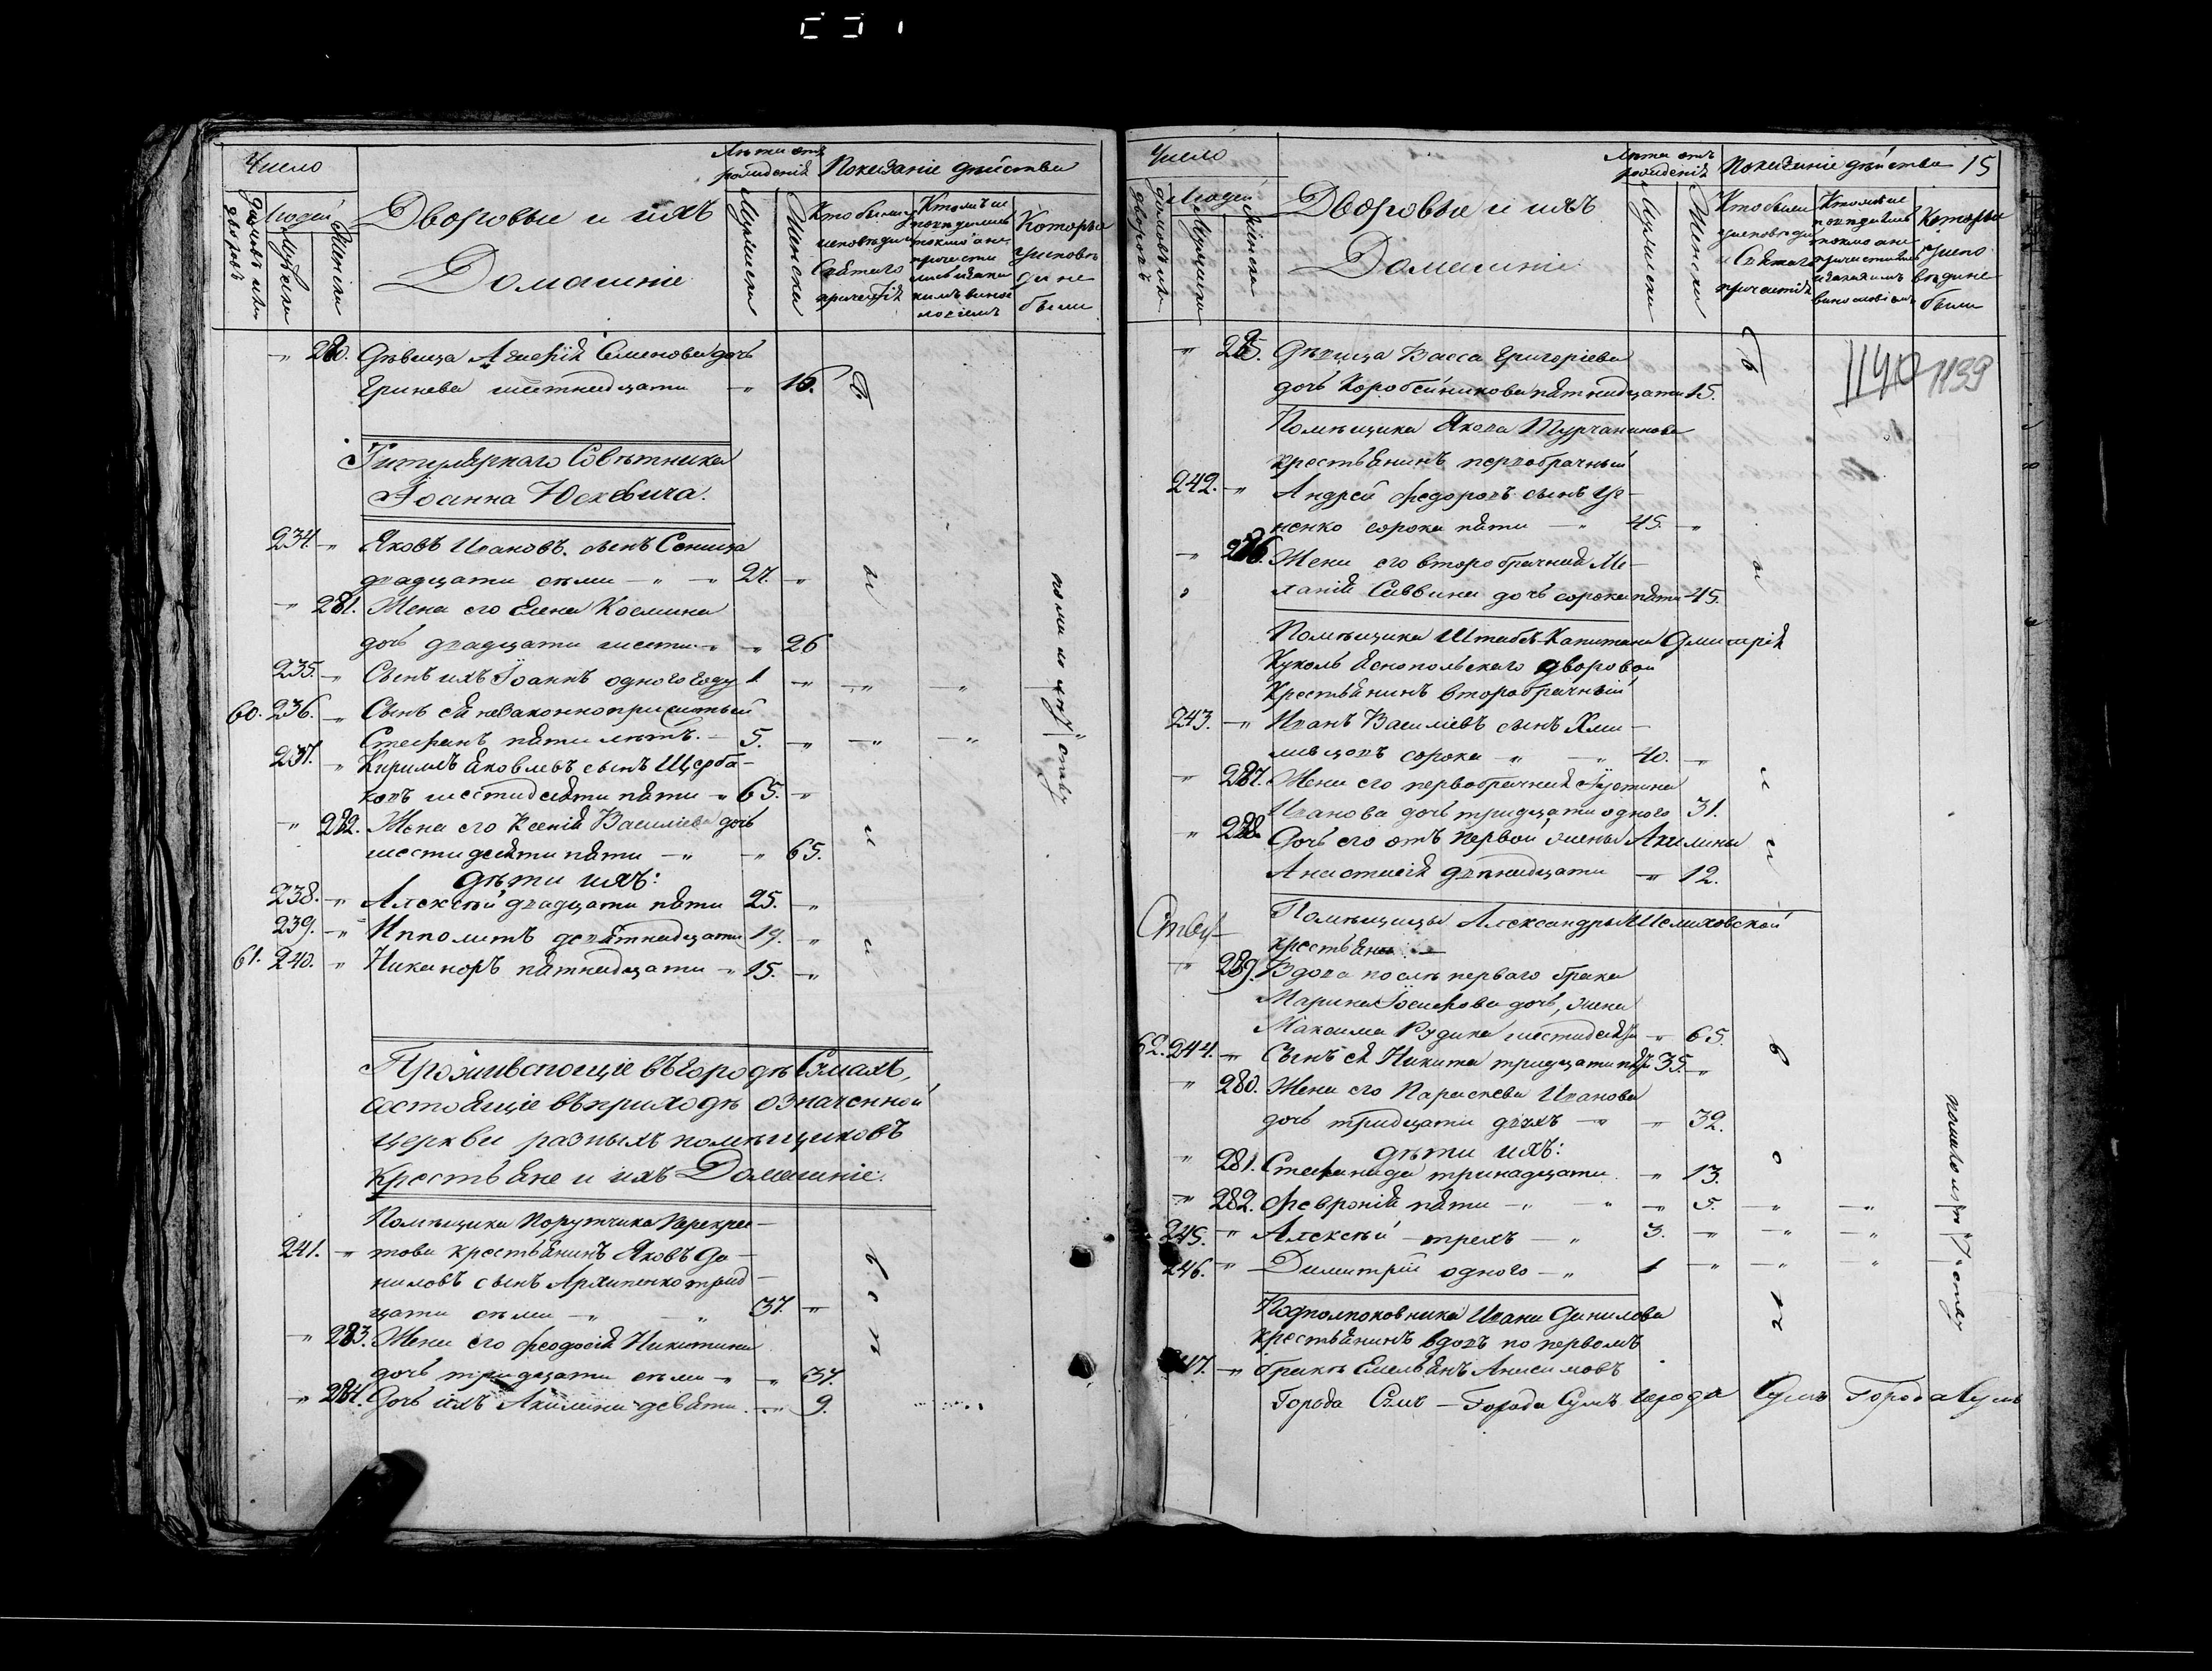 Число
Лѣта отъ рожденія
Показаніе дѣйства
Людей
Дворовые и ихъ
Домашніе
Мужеска
Женска
Которые
были
" 280. Дѣвица Агафія Семенова дочь
Гринева шестнадцати " 16.
Титулярнаго Совѣтника
Іоанна Юскевича.
234. " Яковъ Ивановъ сынъ
двадцати семи — " — 27. "
" 281. Жена его Елена Космина
дочь двадцати шести — " 26
235. " Сынъ ихъ Іоаннъ одного году 1. " " "
60. 236. " Сынъ ея незаконноприжитый
Стефанъ пяти лѣтъ. — 5. " " "
237. " Кирилъ Яковлевъ сынъ Щерба-
ковъ шестидесяти пяти " 65. "
" 282. Жена его Ксенія Василіева дочь
шестидесяти пяти — " " 65.
Дѣти ихъ:
238. " Алексѣй двадцати пяти 25. "
239. " Ипполитъ девятнадцати 19. "
61. 240. " Никаноръ пятнадцати " 15. "
по малолѣтству
Проживающіе въ городѣ Сумахъ,
состоящіе въ приходѣ означенной
церкви разныхъ помѣщиковъ
крестьяне и ихъ Домашніе.
Помѣщика Порутчика Перекрес-
241. " това крестьянинъ Яковъ Да-
ниловъ сынъ Архипенко трид-
цати семи — " " 37. "
" 283. Жена его Феодосія Никитина
дочь тридцати семи — " 37.
" 284. Дочь ихъ Акилина девяти — " 9.
Число
Лѣта отъ рожденія
Показаніе дѣйства 15
Людей
Дворовые и ихъ
Домашніе
Мужеска
Женска
Которые
были
1140 1139
" 285. Дѣвица Васса Григоріева
дочь Коробейникова пятнадцати 15.
Помѣщика Якова Турчанинова
крестьянинъ первобрачный
242. " Андрей Федоровъ сынъ
ненко сорока пяти — " 45. "
" 286. Жена его второбрачная Ме-
ланія Саввина дочь сорока пяти 45.
Помѣщика Штабсъ-Капитана Дмитрія
Куколь Яснопольскаго дворовой
Крестьянинъ второбрачный
243. " Иванъ Василіевъ сынъ
сорока " " 40. "
" 287. Жена его первобрачная Іустина
Иванова дочь тридцати одного 31.
" 288. Дочь его отъ первой жены Акилины
Анастасія двѣнадцати " 12.
Помѣщицы Александры Шелиховской
крестьяне
" 289. Вдова послѣ перваго брака
Марина Іосифова дочь, жена
Максима Рудика " 65.
62. 244. " Сынъ ея Никита тридцати пяти 35. "
" 280. Жена его Параскева Иванова
дочь тридцати двухъ — " " 32.
дѣти ихъ:
" 281. Стефанида тринадцати " 13.
" 282. Февронія пяти — " " " 5. " "
245. " Алексѣй — трехъ — " 3. " " "
246. " Димитрій одного — " 1 " " "
по малолѣтству
Подполковника Ивана Данилова
крестьянинъ вдовъ по первомъ
247. " бракѣ Емельянъ Анисимовъ
Города Сумъ — Города Сумъ города Сумъ Города Сумъ